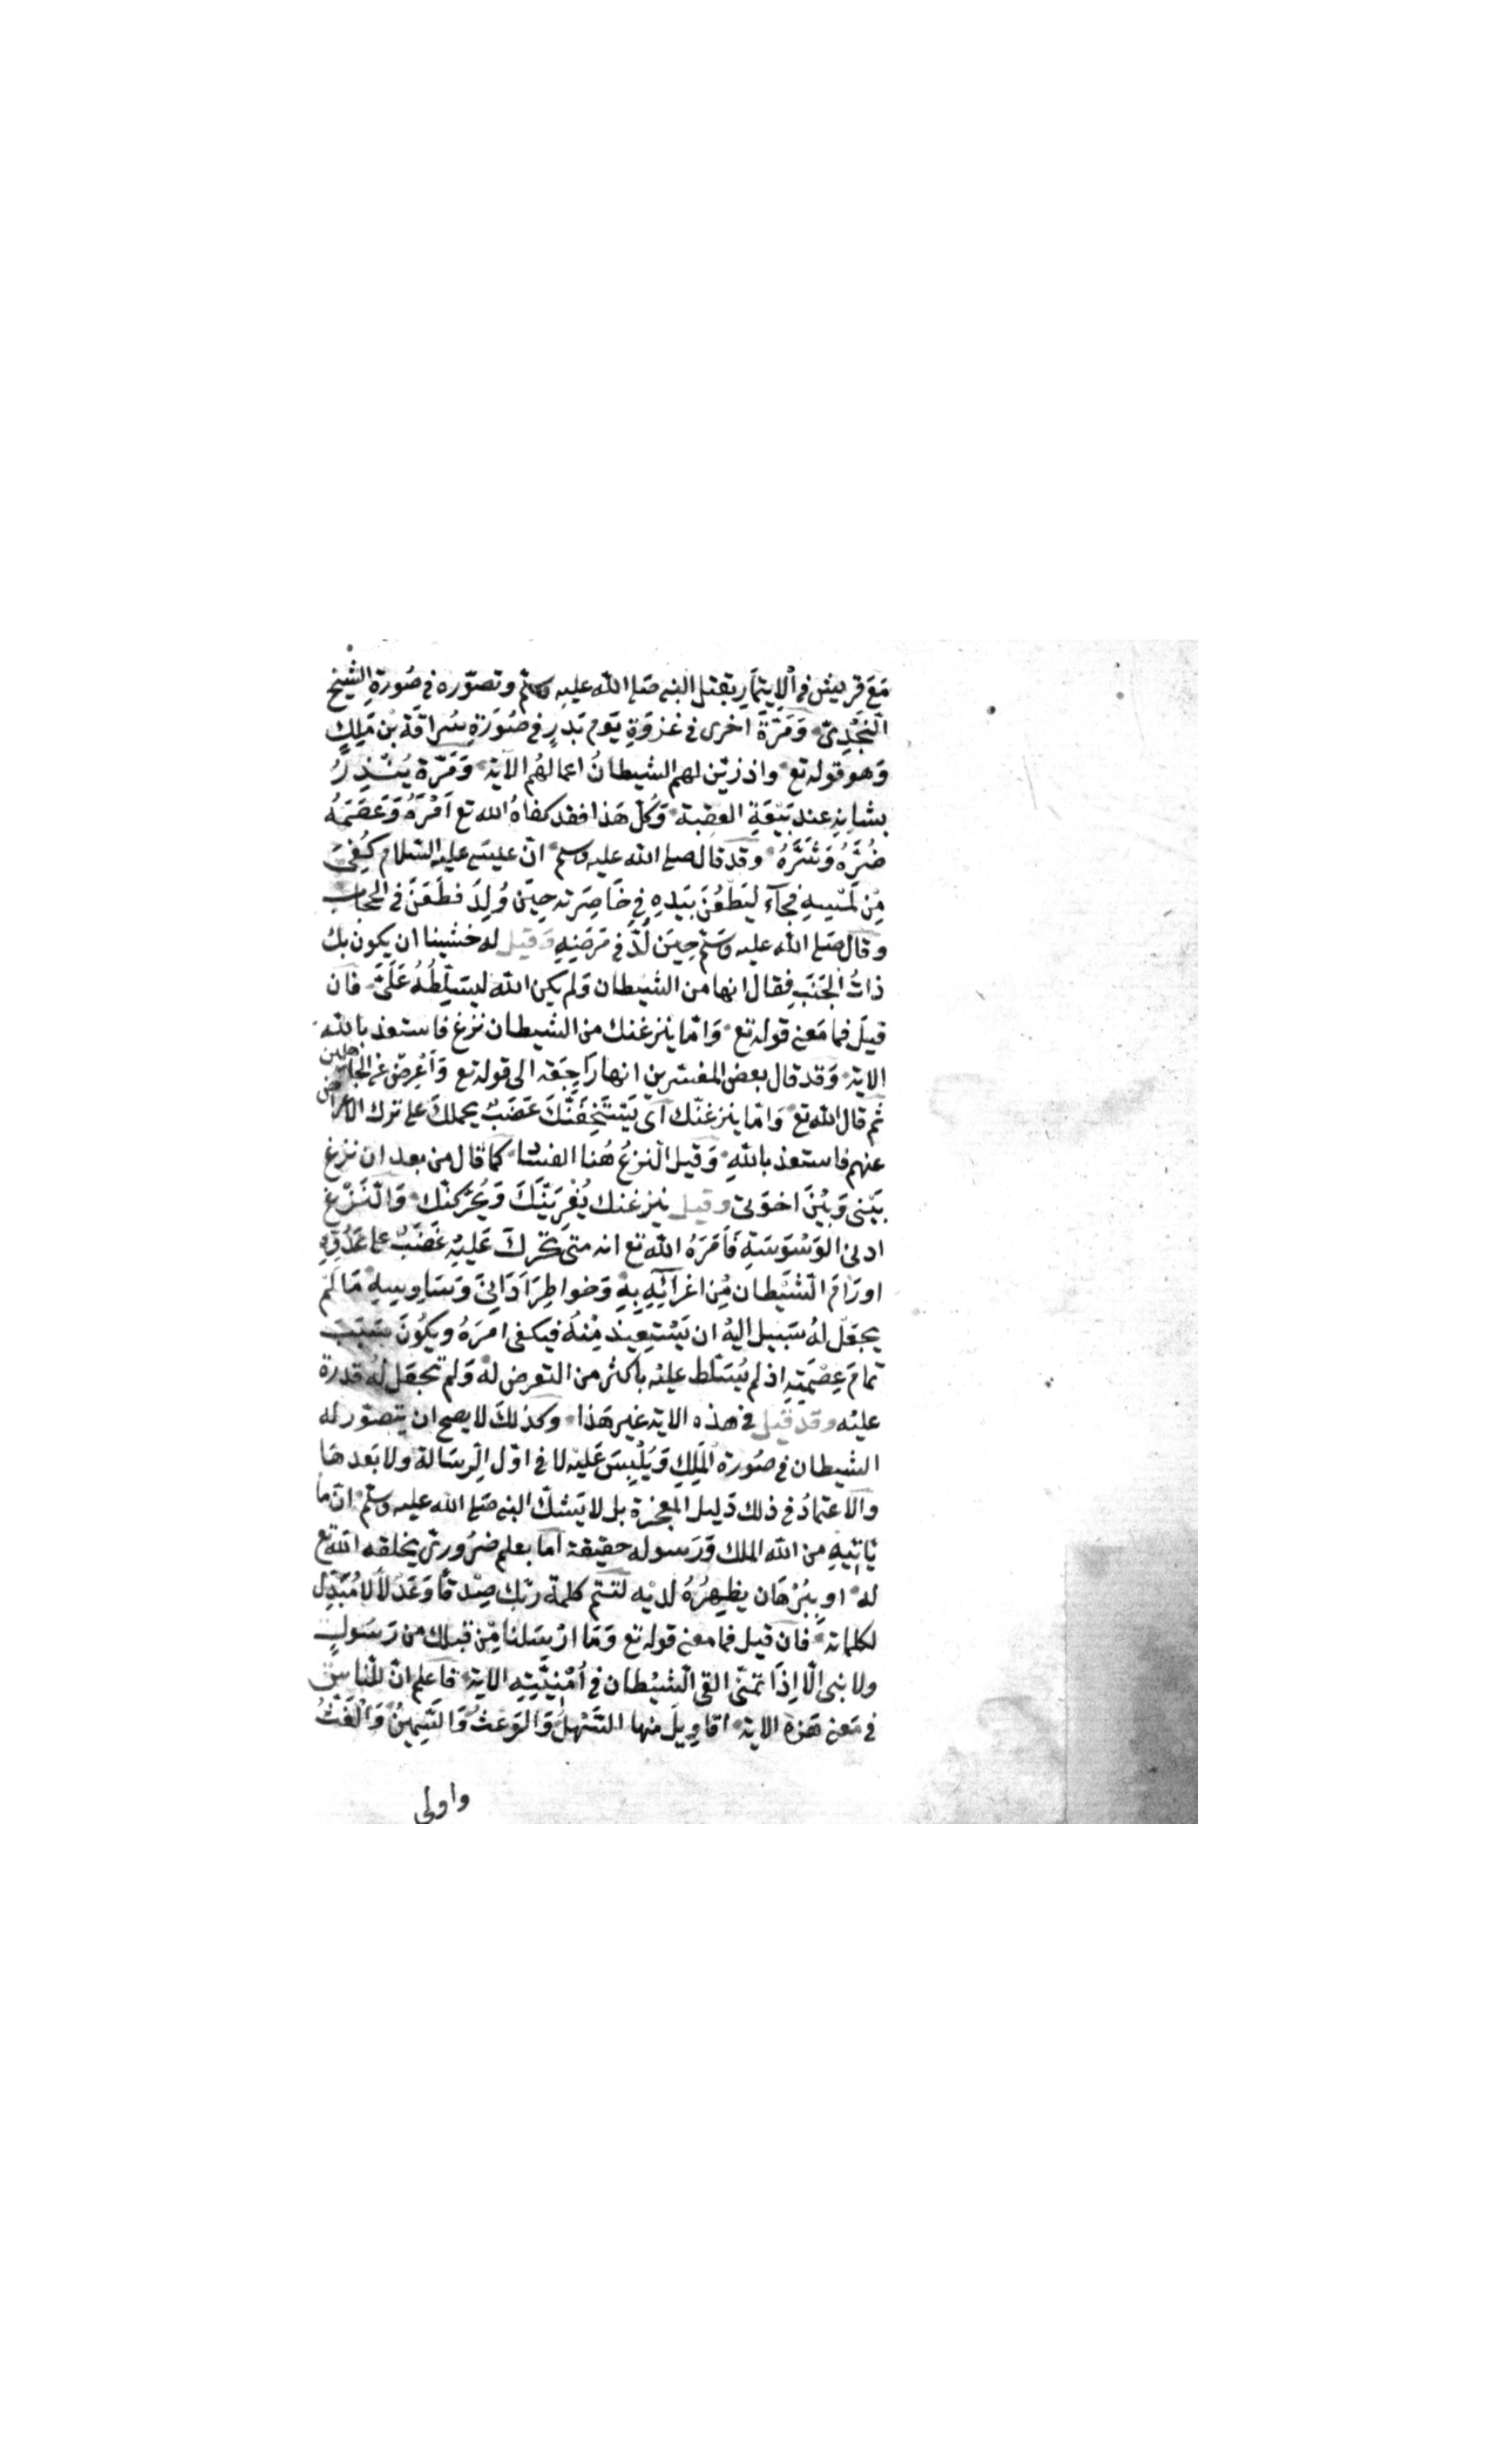 مَعَ قريش في الايتمَارِ بقتل النبي صَلى الله عليه وسَلّم وتصوّره في صُورَةِ الشيخ
النّجْديّ وَمَرّةً اخرى في غزوَةِ يَوم بَدرٍ في صُورَةِ سُراقَة بْن مَلِكٍ
وَهو قوله تع واذ زيّن لهم الشيطانُ اعمالهُم الاية وَمَرّة يُنْذِرُ
بشانِهِ عند بَيْعَةِ العقبة وَكُلّ هَذا فقد كفاهُ الله تع اَمْرَهُ وَعَصَمَهُ
ضُرَّهُ وَشَرَّهُ وقد قال صلى الله عليه وسلم انّ عيسَى عليه السّلام كُفِىَ
مِن لمْسِهِ فجآء ليَطْعُنَ بيَدِهِ في خَاصِرَتِه حِينَ وُلِدَ فطَعَنَ في الحجَاب
وقال صَلى الله عليه وَسَلّم حِينَ لُدّ في مَرَضِهِ وَقيل له خشينا ان يكون بك
ذاتُ الجَنَبِ فقال انها من الشيطان وَلم يكن الله ليسَلّطُهُ عَلَىَّ فان
قيلَ فما مَعنى قوله تع وَامّا ينزغنك من الشيطان نزغ فاستعذ بالله
الاية وَقد قال بعض المفسّرين انها رَاجِعَة الى قوله تع وَاَعْرِضْ عن الجاهلين
ثم قال الله تع وَامّا ينزغنّك اَى يَسْتَخِفّنّكَ غَضَبٌ يحملكَ على ترك الاعراض
عنهم فاستعذ باللهِ وَقيل النزغُ هُنا الفسَاد كما قال من بعد ان نزغ
بَيْنى وَبَيْنَ اخوَتى وقيل ينزغنك يُغْرِيَنَّكَ وَيُحَرّكنّك وَالنّزْغ
ادنى الوَسْوَسَةِ فَاَمَرَهُ الله تع انه متى تحَرك عَلَيْهِ غَضَبٌ على عَدُوّهِ
اورَامَ الشيْطان مِن اغرَائِهِ بِهِ وَخواطِرَ اَدَانِىَ وَسَاوِسِهِ مَا لَمْ
يجعَل لهُ سَبيل اليهْ ان يَسْتعِيذ مِنْهُ فيكفى امرَهُ وَيكُونَ سَبَبَ
تمامَ عِصْمَتِهِ اذ لم يُسَلّط عليْه باكثر من التعرض له وَلم تجعَل له قدرة
عليْه وقد قيل في هذه الاية غير هَذا وكذلكَ لا يصح ان يتصَوّر له
الشيطان في صُورة المَلِكِ وَيُلْبِسَ عَليْه لا في اوّل الرسَالة ولا بَعدهَا
والاعتمادُ في ذلك دَليل المعجزة بل لا يَشكّ النبي صَلى الله عليه وسَلّم انّ ما
يَاتِيهِ من الله الملك وَرَسوله حقيقة امّا بعلم ضرُورىّ يخلقه الله تع
له او ببُرْهَان يظهِرُهُ لديْه لتتم كلمة ربّك صِدْقًا وَعَدْلاً لا مُبَدّل
لكلماته فان قيل فما معنى قوله تع وَمَا ارْسَلنا مِن قبلك من رَسُولٍ
ولا نبى الّا اِذَا تمنّى القى الشيْطان في اُمْنِيّتِهِ الاية فاعلم انّ للناس
في مَعنى هَذِهِ الاية اقاوِيلَ منها السّهْلُ وَالوَعَثُ وَالسّمِينُ وَالغَثُّ
واولى